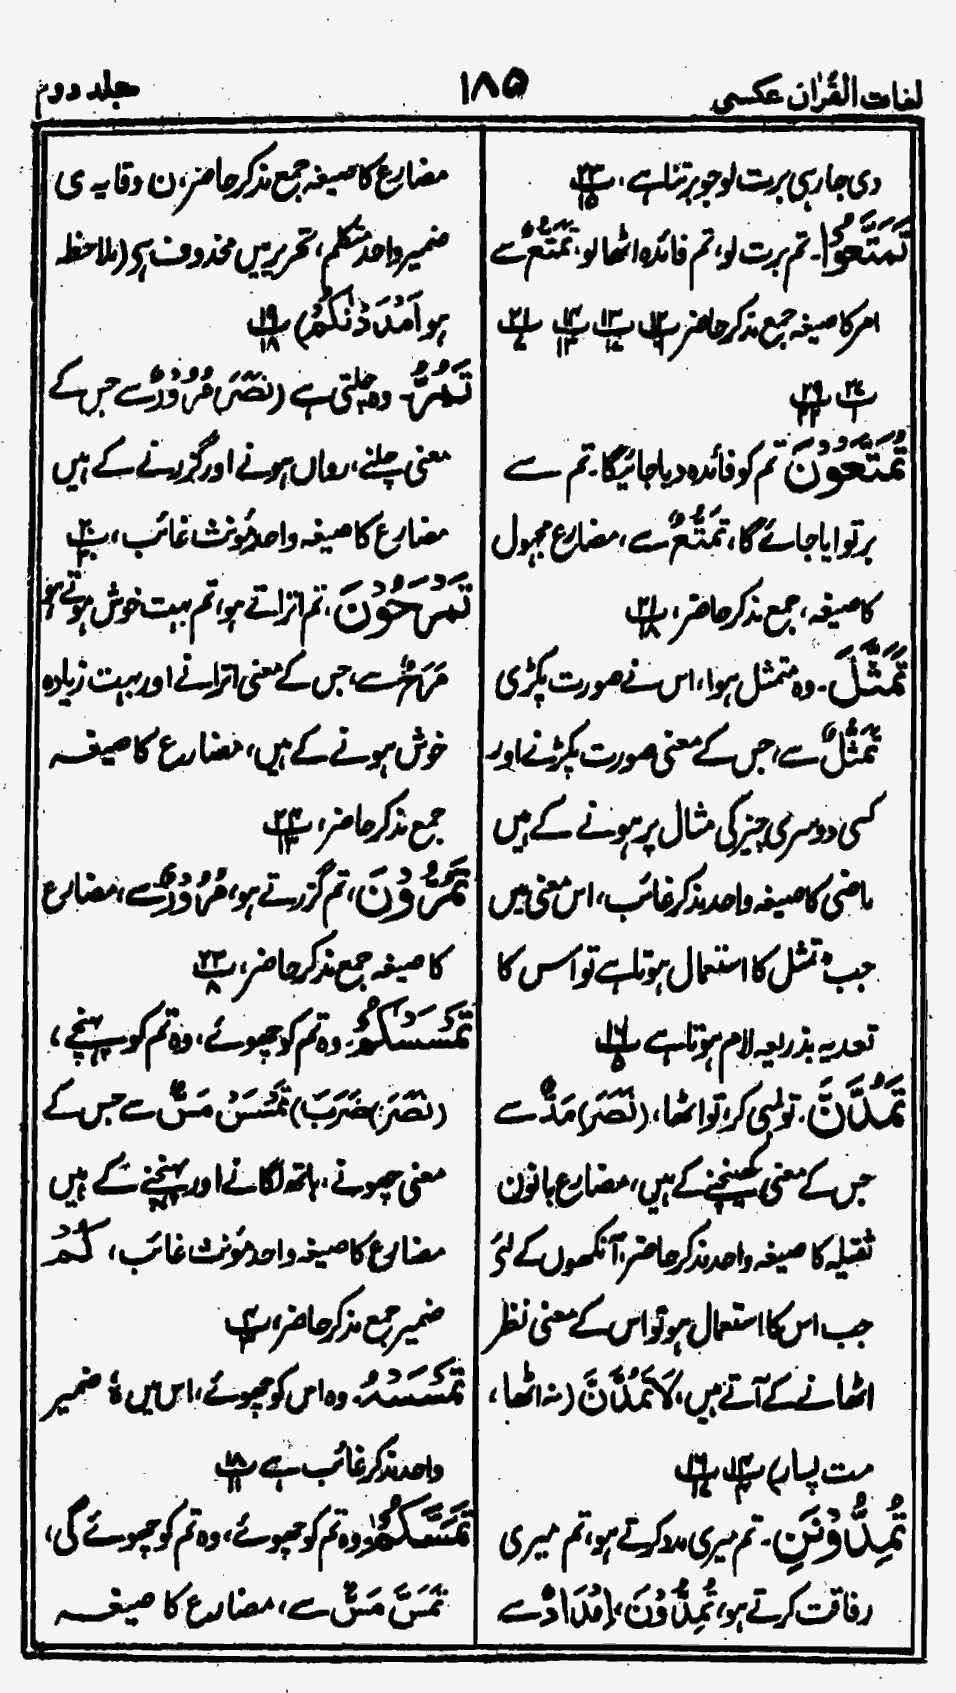 لغات القرآن عکسی
۱۸۵
جلد دوم
دی جا رہی برت لو جو برتنا ہے، پ ۲۳/۱۵
تَمَتَّعُوْا۔ تم برت لو، تم فائدہ اٹھا لو، تَمَتُّعٌ سے
امر کا صیغہ جمع مذکر حاضر پ
تُمَتَّعُوْنَ تم کو فائدہ دیا جائیگا۔ تم سے
برتوایا جائے گا، تَمَتُّعٌ سے، مضارع مجہول
کا صیغہ، جمع مذکر حاضر، پ ۲۱/۱۸
تَمَثَّلَ۔ وہ متمثل ہوا، اس نے صورت پکڑی
تَمَثُّلٌ سے، جس کے معنی صورت پکڑنے اور
کسی دوسری چیز کی مثال پر ہونے کے ہیں
ماضی کا صیغہ واحد مذکر غائب، اس معنی میں
جب تمثل کا استعمال ہوتا ہے تو اس کا
تعدیہ بذریعہ لام ہوتا ہے پ ۱۶/۵
تَمُدَّنَّ۔ تو لمبی کر، تو اٹھا، (نَصَرَ) مَدٌّ سے
جس کے معنی کھینچنے کے ہیں، مضارع بانون
ثقیلہ کا صیغہ واحد مذکر حاضر، آنکھوں کے لئے
جب اس کا استعمال ہو تو اس کے معنی نظر
اٹھانے کے آتے ہیں، لَا تَمُدَّنَّ (نہ اٹھا،
مت پسار) پ ۱۴ پ ۱۶/۱۷
تُمِدُّوْنَنِ۔ تم میری مدد کرتے ہو، تم میری
رفاقت کرتے ہو، تُمِدُّوْنَ، اِمْدَادٌ سے
مضارع کا صیغہ جمع مذکر حاضر، ن وقایہ ی
ضمیر واحد متکلم، تحریر میں محذوف ہے (ملاحظہ
ہو اَمَدَّنٰكُمْ) پ ۱۹/۱۸
تَمُرُّ۔ وہ چلتی ہے (نَصَرَ) مُرُوْرٌ سے جس کے
معنی چلنے، رواں ہونے اور گزرنے کے ہیں
مضارع کا صیغہ واحد مؤنث غائب، پ ۲۰
تَمْرَحُوْنَ، تم اتراتے ہو، تم بہت خوش ہوتے ہو
مَرَحٌ سے، جس کے معنی اترانے اور بہت زیادہ
خوش ہونے کے ہیں، مضارع کا صیغہ
جمع مذکر حاضر، پ ۲۴
تَمُرُّوْنَ، تم گزرتے ہو، مُرُوْرٌ سے، مضارع
کا صیغہ جمع مذکر حاضر، پ ۲۳/۸
تَمْسَسْكُمْ۔ وہ تم کو چھوئے، وہ تم کو پہنچے،
(نَصَرَ) (ضَرَبَ) تَمْسَسْ مَسٌّ سے جس کے
معنی چھونے، ہاتھ لگانے اور پہنچنے کے ہیں
مضارع کا صیغہ واحد مؤنث غائب، كُمْ
ضمیر جمع مذکر حاضر، پ
تَمْسَسْهُ۔ وہ اس کو چھوئے، اس میں هُ ضمیر
واحد مذکر غائب ہے پ ۱۸/۱۱
تَمَسَّكُمْ، وہ تم کو چھوئے، وہ تم کو چھوئے گی،
تَمَسَّ مَسٌّ سے، مضارع کا صیغہ